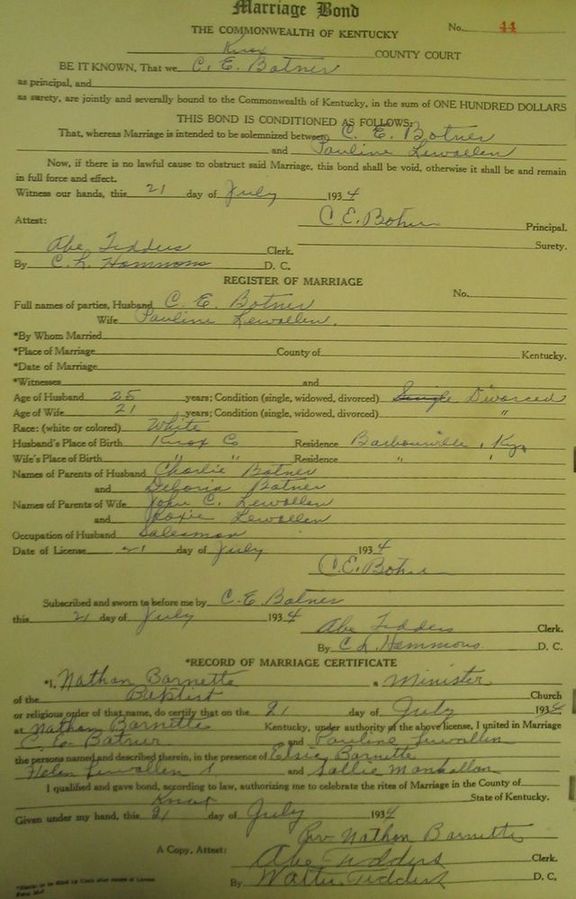 Marriage Bond
THE COMMONWEALTH OF KENTUCKY No. 44
Knox COUNTY COURT
BE IT KNOWN, That we C. E. Botner
as principal, and
as surety, are jointly and severally bound to the Commonwealth of Kentucky, in the sum of ONE HUNDRED DOLLARS
THIS BOND IS CONDITIONED AS FOLLOWS:
That, whereas Marriage is intended to be solemnized between C. E. Botner
and Pauline Lewallen
Now, if there is no lawful cause to obstruct said Marriage, this bond shall be void, otherwise it shall be and remain
in full force and effect.
Witness our hands, this 21 day of July 1934
C E. Botner Principal.
Attest: Surety.
Abe Tedders Clerk.
By C. L. Hammons D. C.
REGISTER OF MARRIAGE
No.
Full names of parties, Husband C. E. Botner
Wife Pauline Lewallen.
*By Whom Married
*Place of Marriage County of Kentucky.
*Date of Marriage
*Witnesses and
Age of Husband 25 years; Condition (single, widowed, divorced) Single Divorced
Age of Wife 21 years; Condition (single, widowed, divorced) "
Race: (white or colored) White
Husband's Place of Birth Knox Co Residence Barbourville, Ky.
Wife's Place of Birth " " Residence " "
Names of Parents of Husband Charlie Botner
and Deboria Botner
Names of Parents of Wife John C. Lewallen
and Roxie Lewallen
Occupation of Husband Salesman
Date of License 21 day of July 1934
C.E. Botner
Subscribed and sworn to before me by C. E. Botner
this 21 day of July 1934
Abe Tedders Clerk.
By C L Hammons D. C.
*RECORD OF MARRIAGE CERTIFICATE
I, Nathan Barnette a Minister
of the Baptist Church
or religious order of that name, do certify that on the 21 day of July 1934
at Nathan Barnette Kentucky, under authority of the above license, I united in Marriage
C. E. Botner and Pauline Lewallen
the persons named and described therein, in the presence of Elsie Barnette
Helen Lewallen and Sallie
I qualified and gave bond, according to law, authorizing me to celebrate the rites of Marriage in the County of
Knox State of Kentucky.
Given under my hand, this 21 day of July 1934
Rev Nathan Barnette
A Copy, Attest: Abe Tedders Clerk.
By Walter Tedders D. C.